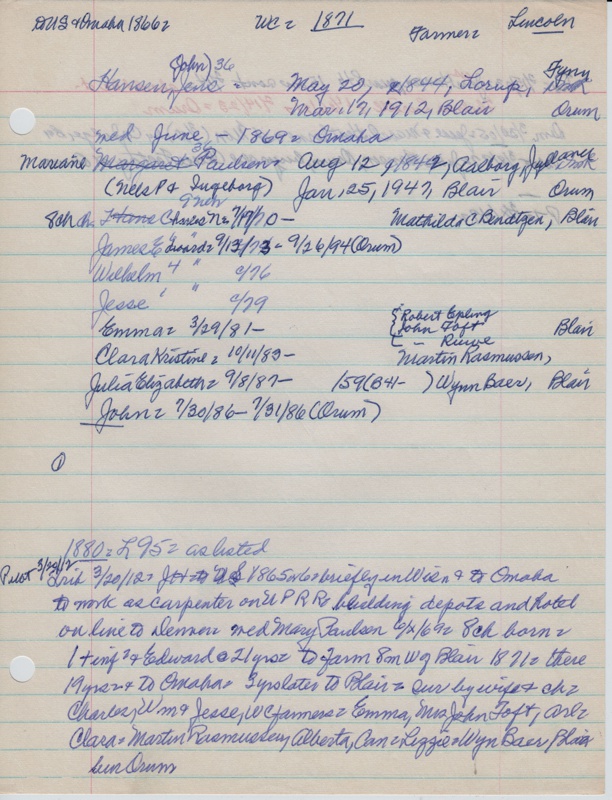 to US & Omaha 1866= WC= 1871 Farmer= Lincoln
John) 36 Fyny
Hansen, Jens = May 20, 1844, Lorup,
Mar. 17, 1912, Blair Orum
med June, - 1869= Omaha
Mariane Margaret Paulsen= Aug 12, 1847, Aalborg,
(Nels P & Ingeborg) Jan. 25, 1947, Blair Orum
8ch Charles N= 7/9/70 - Mathilda C Bendtzen, Blair
James E "Edward= 9/13/73 - 9/26/94 (Orum)
Wilhelm " " c/76
Jesse " " c/79
Emma= 3/29/81 - {Robert Epling
{John Toft Blair
{ - Riewe
Clara Kristine= 10/11/83 - Martin Rasmussen,
Julia Elizabeth= 9/8/87 - /59(B41- ) Wynn Baer, Blair
John= 7/30/86 - 7/31/86 (Orum)
①
1880= L 95= as listed
Pilot 3/20/12
Trib 3/20/12= to US 1865 w 6= briefly in Wisn & to Omaha
to work as carpenter on U P R R= building depots and hotel
on line to Denver= med Mary Paulsen 6/x/69= 8ch born=
1 + inf= & Edward @ 21 yrs= to farm 8m W of Blair 1871= there
19 yrs= & to Omaha= 3 yrs later to Blair= sur by wife & ch=
Charles, Wm & Jesse, WC farmers= Emma, Mrs John Toft,
Clara= Martin Rasmussen, Alberta, Can= Lizzie= Wyn Baer, Blair
bur Orum